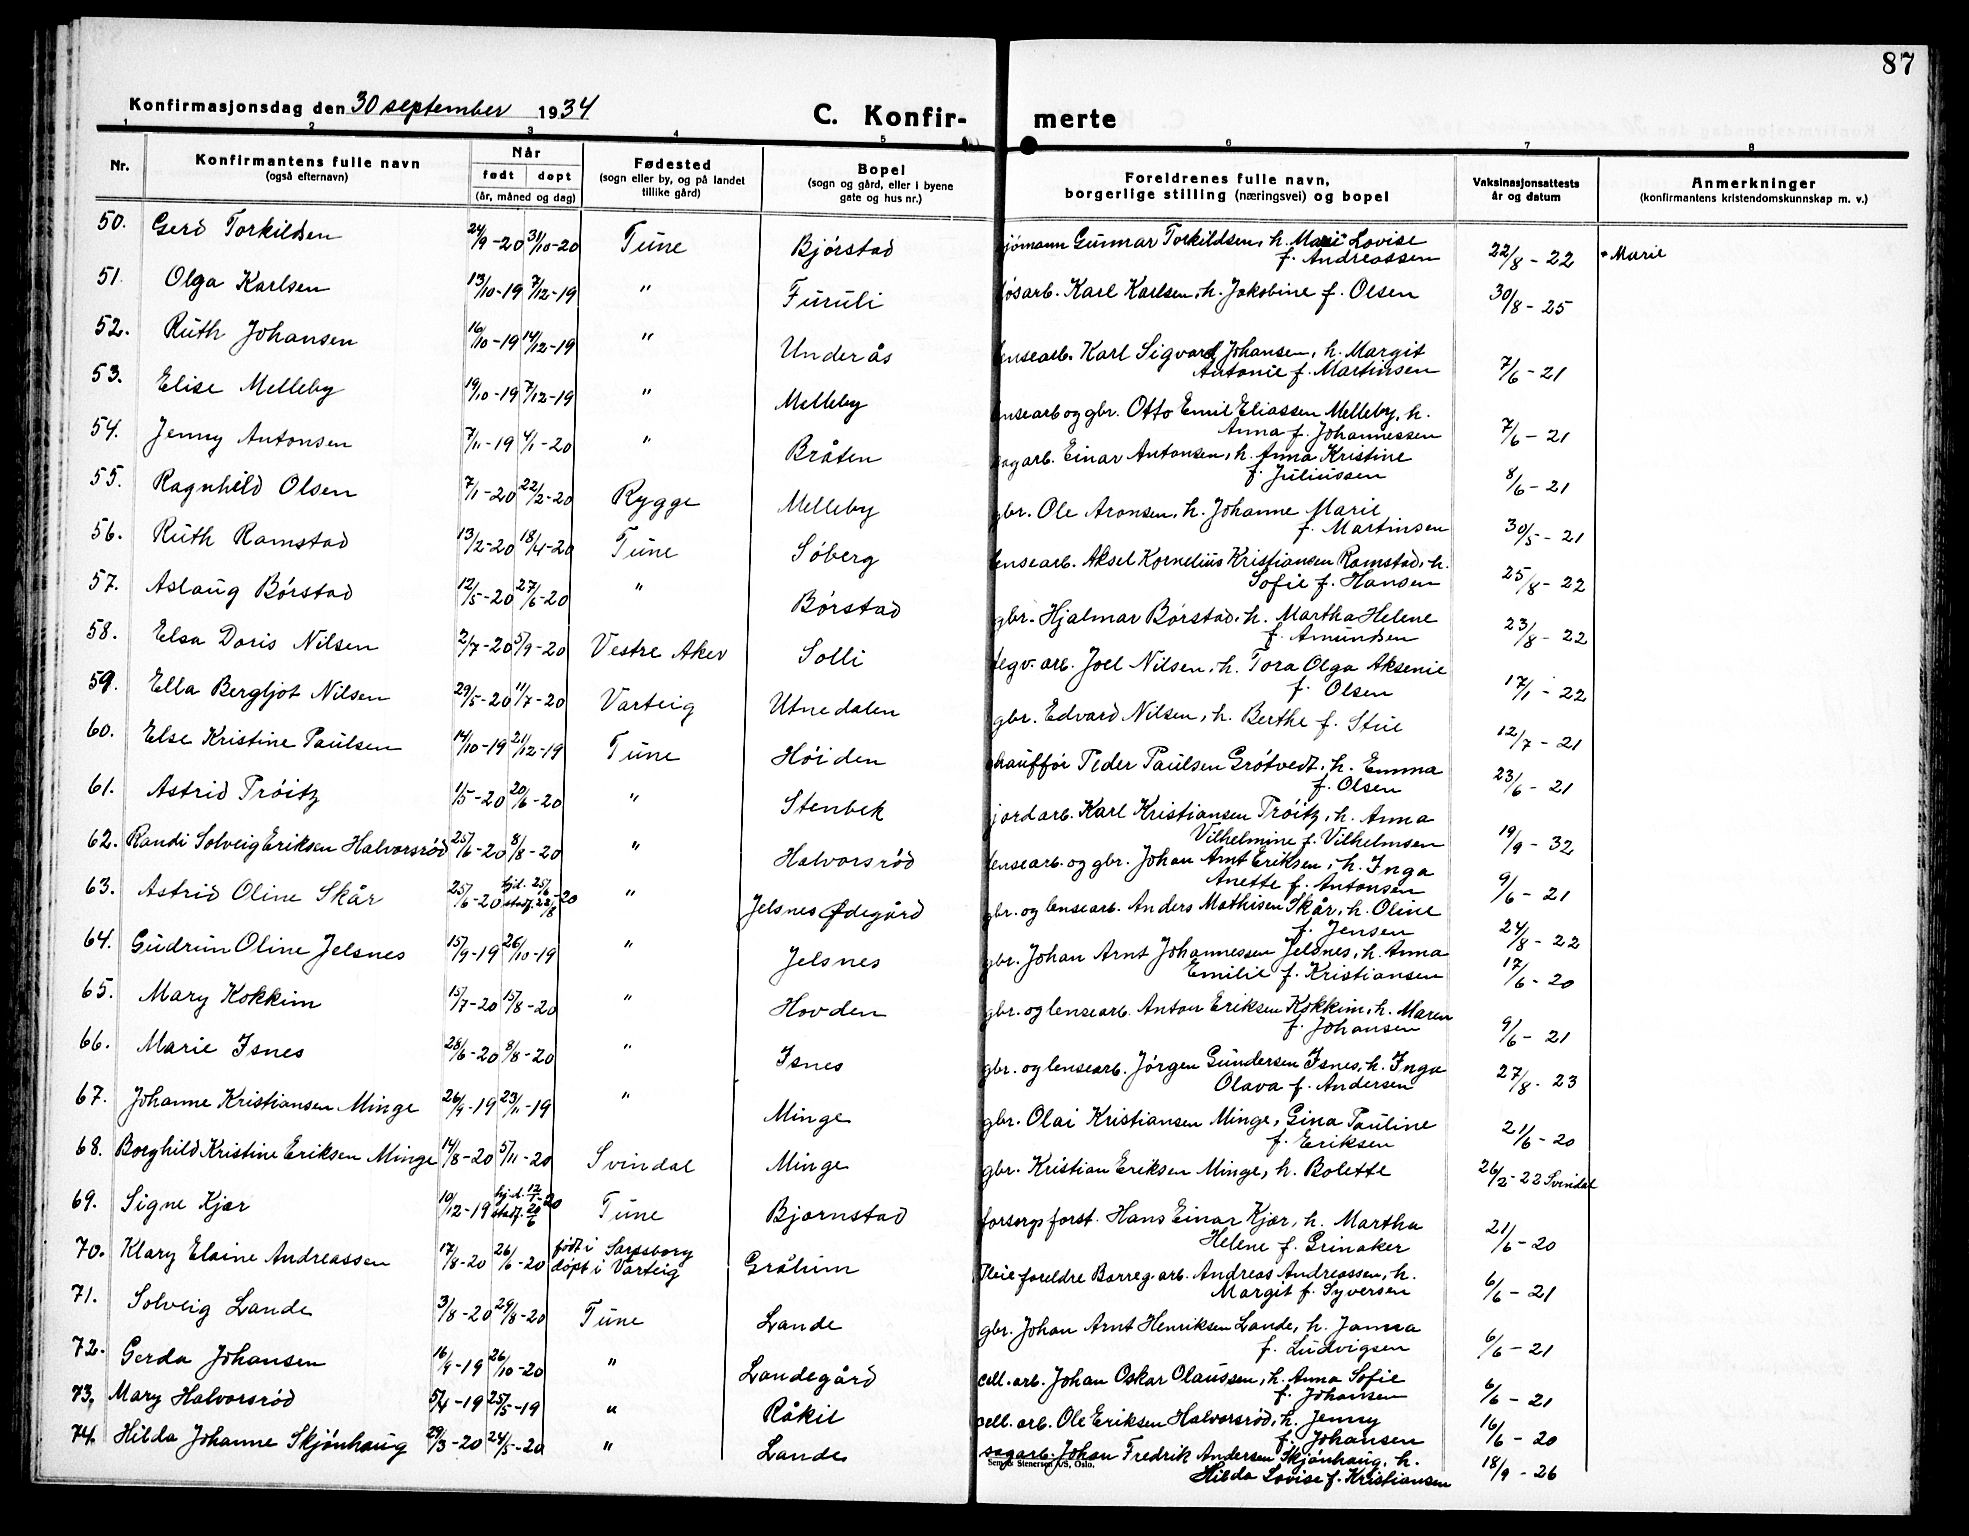 87
Konfirmasjonsdag den 30 september 1934
C. Konfir- merte
1 2 3 4 5 6 7 8
Nr. Konfirmantens fulle navn (også efternavn) Når født døpt (år, måned og dag) Fødested (sogn eller by, og på landet tillike gård) Bopel (sogn og gård, eller i byene gate og hus nr.) Foreldrenes fulle navn, borgerlige stilling (næringsvei) og bopel Vaksinasjonsattests år og datum Anmerkninger (konfirmantens kristendomskunnskap m. v.)
50. Gerd Torkildsen 24/9-20 31/10-20 Tune Bjørstad jømann Gunnar Torkildsen, h. Marie Lovise
f. Andreassen 22/8-22 * Marie
51. Olga Karlsen 13/10-19 7/12-19 " Furuli løsarb. Karl Karlsen, h. Jakobine f. Olsen 30/8-25
52. Ruth Johansen 16/10-19 14/12-19 " Underås lensearb. Karl Sigvard Johansen, h. Margit
Antonie f. Martinsen 7/6-21
53. Elise Melleby 19/10-19 7/12-19 " Melleby lensearb og gbr. Otto Emil Eliassen Melleby, h.
Anna f. Johannessen 7/6-21
54. Jenny Antonsen 7/11-19 4/1-20 " Bråten sagarb. Einar Antonsen, h. Anna Kristine
f. Juliussen 8/6-21
55. Ragnhild Olsen 7/1-20 22/2-20 Rygge Melleby gbr. Ole Aronsen, h. Johanne Marie
f. Martinsen 30/5-21
56. Ruth Ramstad 13/2-20 18/4-20 Tune Søberg lensearb. Aksel Kornelius Kristiansen Ramstad, h.
Sofie f. Hansen 25/8-22
57. Aslaug Børstad 12/5-20 27/6-20 " Børstad gbr. Hjalmar Børstad, h. Martha Helene
f. Amundsen 23/8-22
58. Elsa Doris Nilsen 2/7-20 5/9-20 Vestre Aker Solli legv. arb. Joel Nilsen, h. Tora Olga Aksenie
f. Olsen 17/1-22
59. Ella Bergljot Nilsen 29/5-20 11/7-20 Varteig Utnedalen gbr. Edvard Nilsen, h. Berthe f. Stue 12/7-21
60. Else Kristine Paulsen 14/10-19 21/12-19 Tune Høiden chauffør Peder Paulsen Grøtvedt, h. Emma
f. Olsen 23/6-21
61. Astrid Trøitz 1/5-20 20/6-20 " Stenbek jordarb. Karl Kristiansen Trøitz, h. Anna
Vilhelmine f. Vilhelmsen 19/9-32
62. Randi Solveig Eriksen Halvorsrød 25/6-20 8/8-20 " Halvorsrød lensearb. og gbr. Johan Arnt Eriksen, h. Inga
Anette f. Antonsen 9/6-21
63. Astrid Oline Skår 25/6-20 hjd. 25/6 stadf. 22/8-20 " Jelsnes Ødegård gbr. og lensearb. Anders Mathisen Skår, h. Oline
f. Jensen 24/8-22
64. Gudrun Oline Jelsnes 15/9-19 26/10-19 " Jelsnes gbr. Johan Arnt Johannessen Jelsnes, h. Anna
Emilie f. Kristiansen 17/6-20
65. Mary Kokkim 15/7-20 15/8-20 " Hovden gbr. og lensearb. Anton Eriksen Kokkim, h. Maren
f. Johansen 9/6-21
66. Marie Isnes 28/6-20 8/8-20 " Isnes gbr. og lensearb. Jørgen Gundersen Isnes, h. Inga
Olava f. Andersen 27/8-23
67. Johanne Kristiansen Minge 26/9-19 23/11-19 " Minge gbr. Olai Kristiansen Minge, Gina Pauline
f. Eriksen 21/6-20
68. Borghild Kristine Eriksen Minge 14/8-20 5/11-20 Svindal Minge gbr. Kristian Eriksen Minge, h. Bolette 26/2-22 Svindal
69. Signe Kjær 10/12-19 hjd. 12/1-20 stadf. 20/6 Tune Bjørnstad forsorgsforst. Hans Einar Kjær, h. Martha
Helene f. Grinaker 21/6-20
70. Klary Elaine Andreassen 17/8-20 26/6-20 født i Sarpsborg døpt i Varteig Grålum Pleieforeldre Borreg. arb. Andreas Andreassen, h.
Margit f. Syversen 6/6-21
71. Solveig Lande 3/8-20 29/8-20 Tune Lande gbr. Johan Arnt Henriksen Lande, h. Janna
f. Ludvigsen 6/6-21
72. Gerda Johansen 16/9-19 26/10-20 " Landegård cell. arb. Johan Oskar Olaussen, h. Anna Sofie
f. Johansen 6/6-21
73. Mary Halvorsrød 5/4-19 25/5-19 " Råkil cell. arb. Ole Eriksen Halvorsrød, h. Jenny
f. Johansen 16/6-20
74. Hilda Johanne Skjønhaug 29/3-20 24/5-20 " Lande sagarb. Johan Fredrik Andersen Skjønhaug, h.
Hilda Lovise f. Kristiansen 18/9-26
Sem & Stenersen A/S, Oslo.